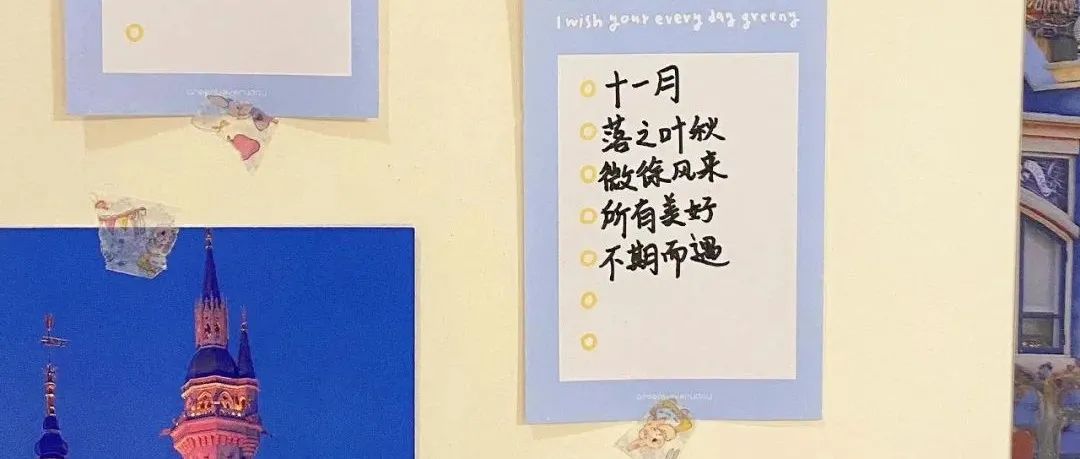 I wish your every day greeny
十一月
落之叶秋
微徐风来
所有美好
不期而遇